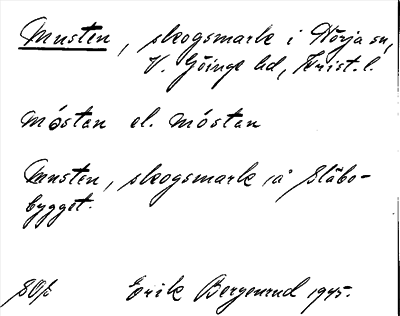 Musten, skogsmark i Nörja sn,
V. Göinge hd, Krist. l.
móstan el. móstan
Musten, skogsmark å Släbo-
bygget.
Erik Bergenrud 1945.